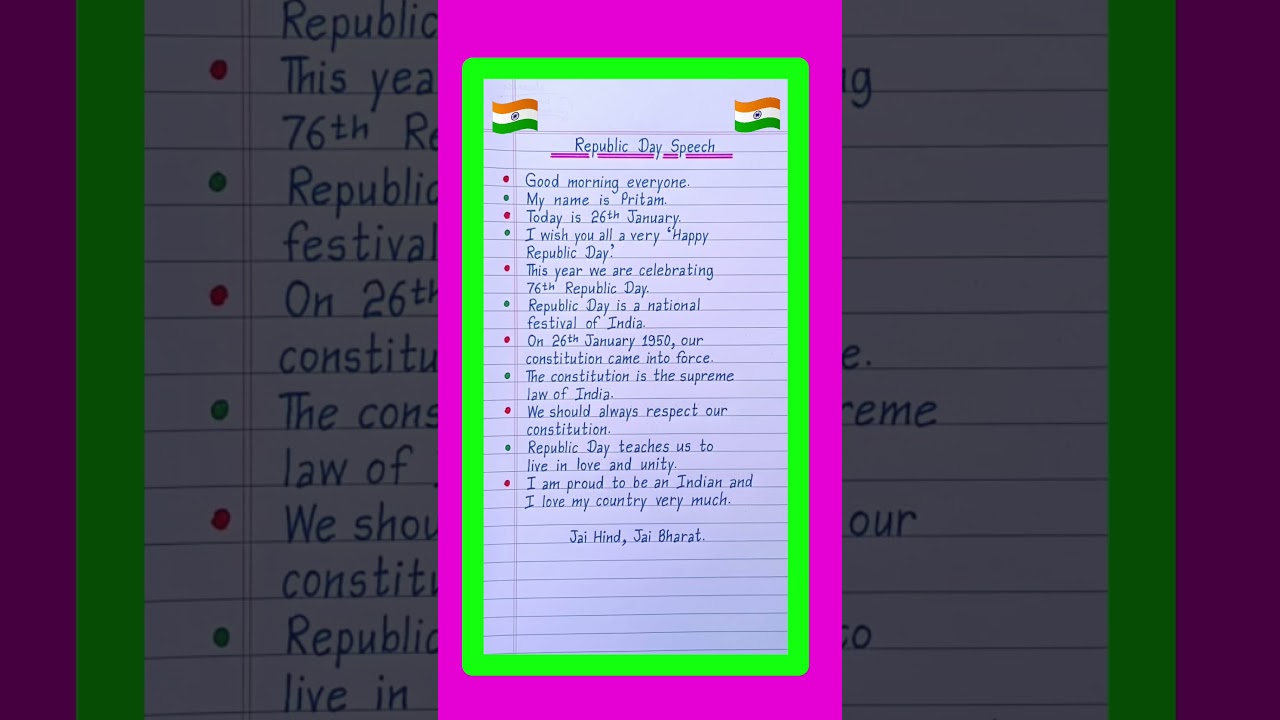 Republic Day Speech
Good morning everyone.
My name is Pritam.
Today is 26th January.
I wish you all a very 'Happy
Republic Day.'
This year we are celebrating
76th Republic Day.
Republic Day is a national
festival of India.
On 26th January 1950, our
constitution came into force.
The constitution is the supreme
law of India.
We should always respect our
constitution.
Republic Day teaches us to
live in love and unity.
I am proud to be an Indian and
I love my country very much.
Jai Hind, Jai Bharat.